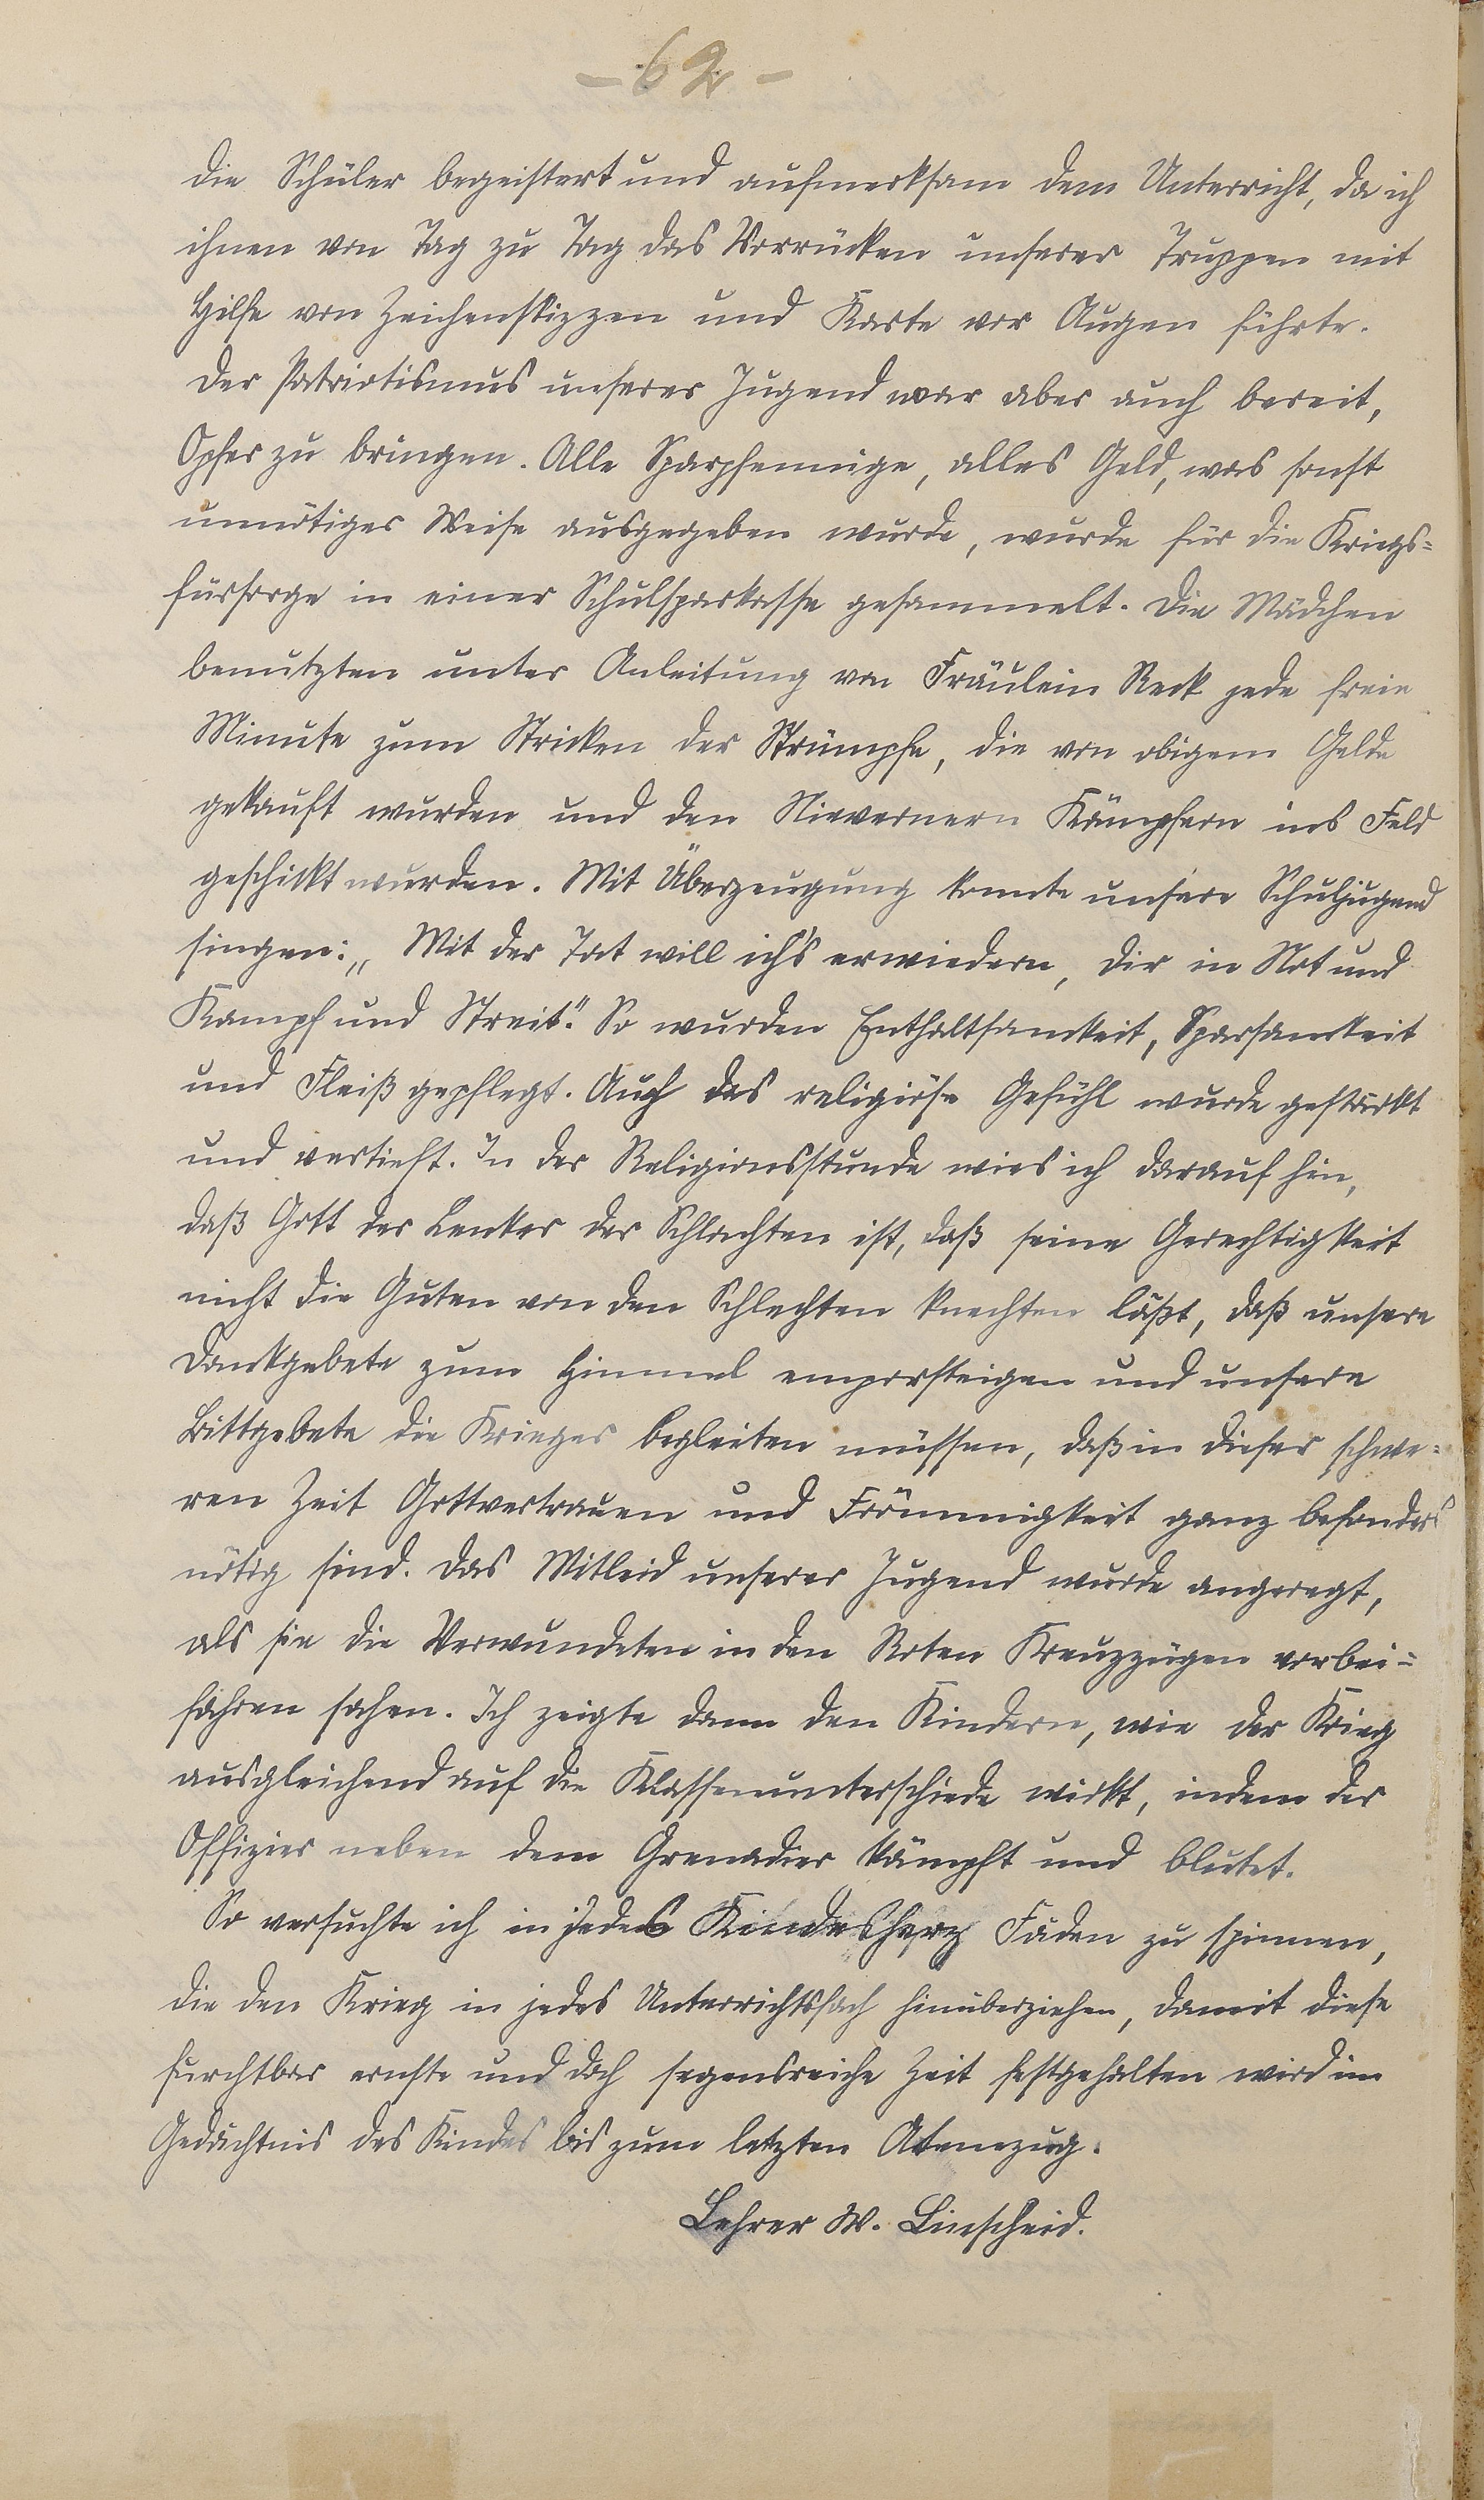 - 62 -
die Schüler begeistert und aufmerksam dem Unterricht, da ich
ihnen von Tag zu Tag das Vorrücken unserer Truppen mit
Hilfe von Zeichenskizzen und Karte vor Augen führte.
Der Patriotismus unserer Jugend war aber auch bereit,
Opfer zu bringen. Alle Sparpfennige, alles Geld, was sonst
unnötiger Weise ausgegeben wurde, wurde für die Kriegs=
fürsorge in einer Schulsparkasse gesammelt. Die Mädchen
benutzten unter Anleitung von Fräulein Reck jede freie
Minute zum Stricken der Strümpfe, die von obigem Gelde
gekauft wurden und den Nievernern Kämpfern ins Feld
geschickt wurden. Mit Überzeugung konnte unsere Schuljugend
singen: „Mit der Tat will ich's erwiedern, dir in Not und
Kampf und Streit." So wurden Enthaltsamkeit, Sparsamkeit
und Fleiß gepflegt. Auch das religiöse Gefühl wurde gestärkt
und vertieft. In der Religionsstunde wies ich darauf hin,
daß Gott der Lenker der Schlachten ist, daß seine Gerechtigkeit
nicht die Guten von den Schlechten knechten läßt, daß unsere
Dankgebete zum Himmel emporsteigen und unsere
Bittgebete die Krieger begleiten müssen, daß in dieser schwe=
ren Zeit Gottvertrauen und Frömmigkeit ganz besonders
nötig sind. Das Mitleid unserer Jugend wurde angeregt,
als sie die Verwundeten in den Roten Kreuzzügen vorbei=
fahren sahen. Ich zeigte dann den Kindern, wie der Krieg
ausgleichend auf die Klassenunterschiede wirkt, indem der
Offizier neben dem Grenadier kämpft und blutet.
So versuchte ich in jedes Kindesherz Fäden zu spinnen,
die den Krieg in jedes Unterrichtsfach hinüberziehen, damit diese
furchtbar ernste und doch segensreiche Zeit festgehalten wird im
Gedächtnis des Kindes bis zum letzten Atemzug.
Lehrer W. Linscheid.